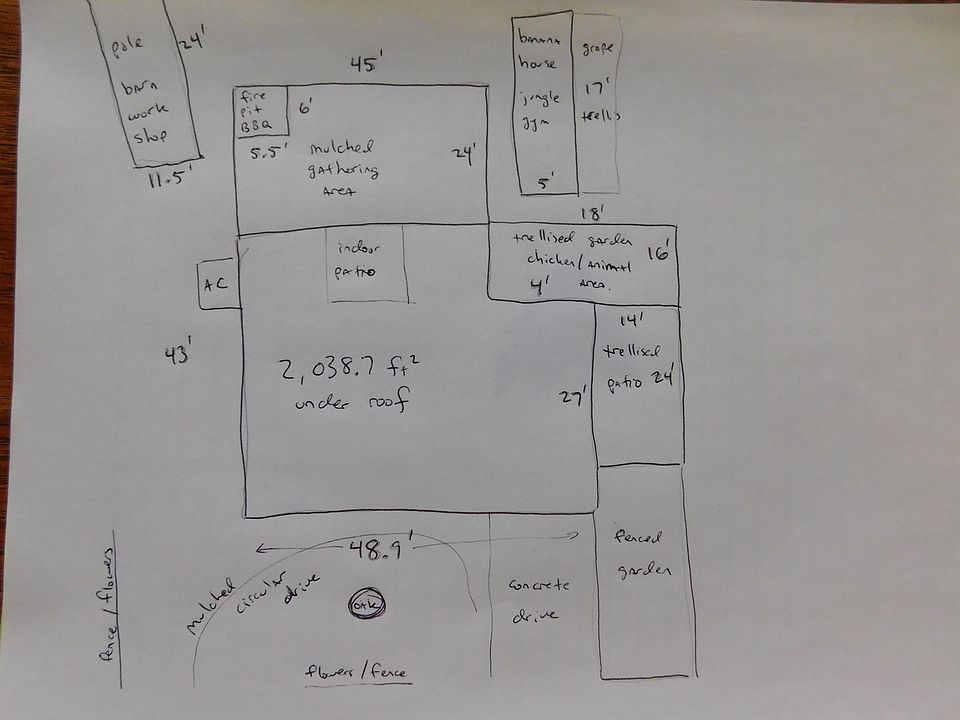 pole
24'
barn
work
shop
11.5'
45'
fire
pit
BBQ
6'
5.5'
mulched
gathering
area
24'
banana
house
jungle
gym
5'
grape
17'
trellis
18'
trellised garden
chicken/animal
area.
16'
4'
indoor
patio
AC
43'
2,038.7 ft²
under roof
27'
14'
trellised
patio 24'
48.9'
mulched
circular
drive
oak
concrete
drive
fenced
garden
fence/flowers
flowers/fence